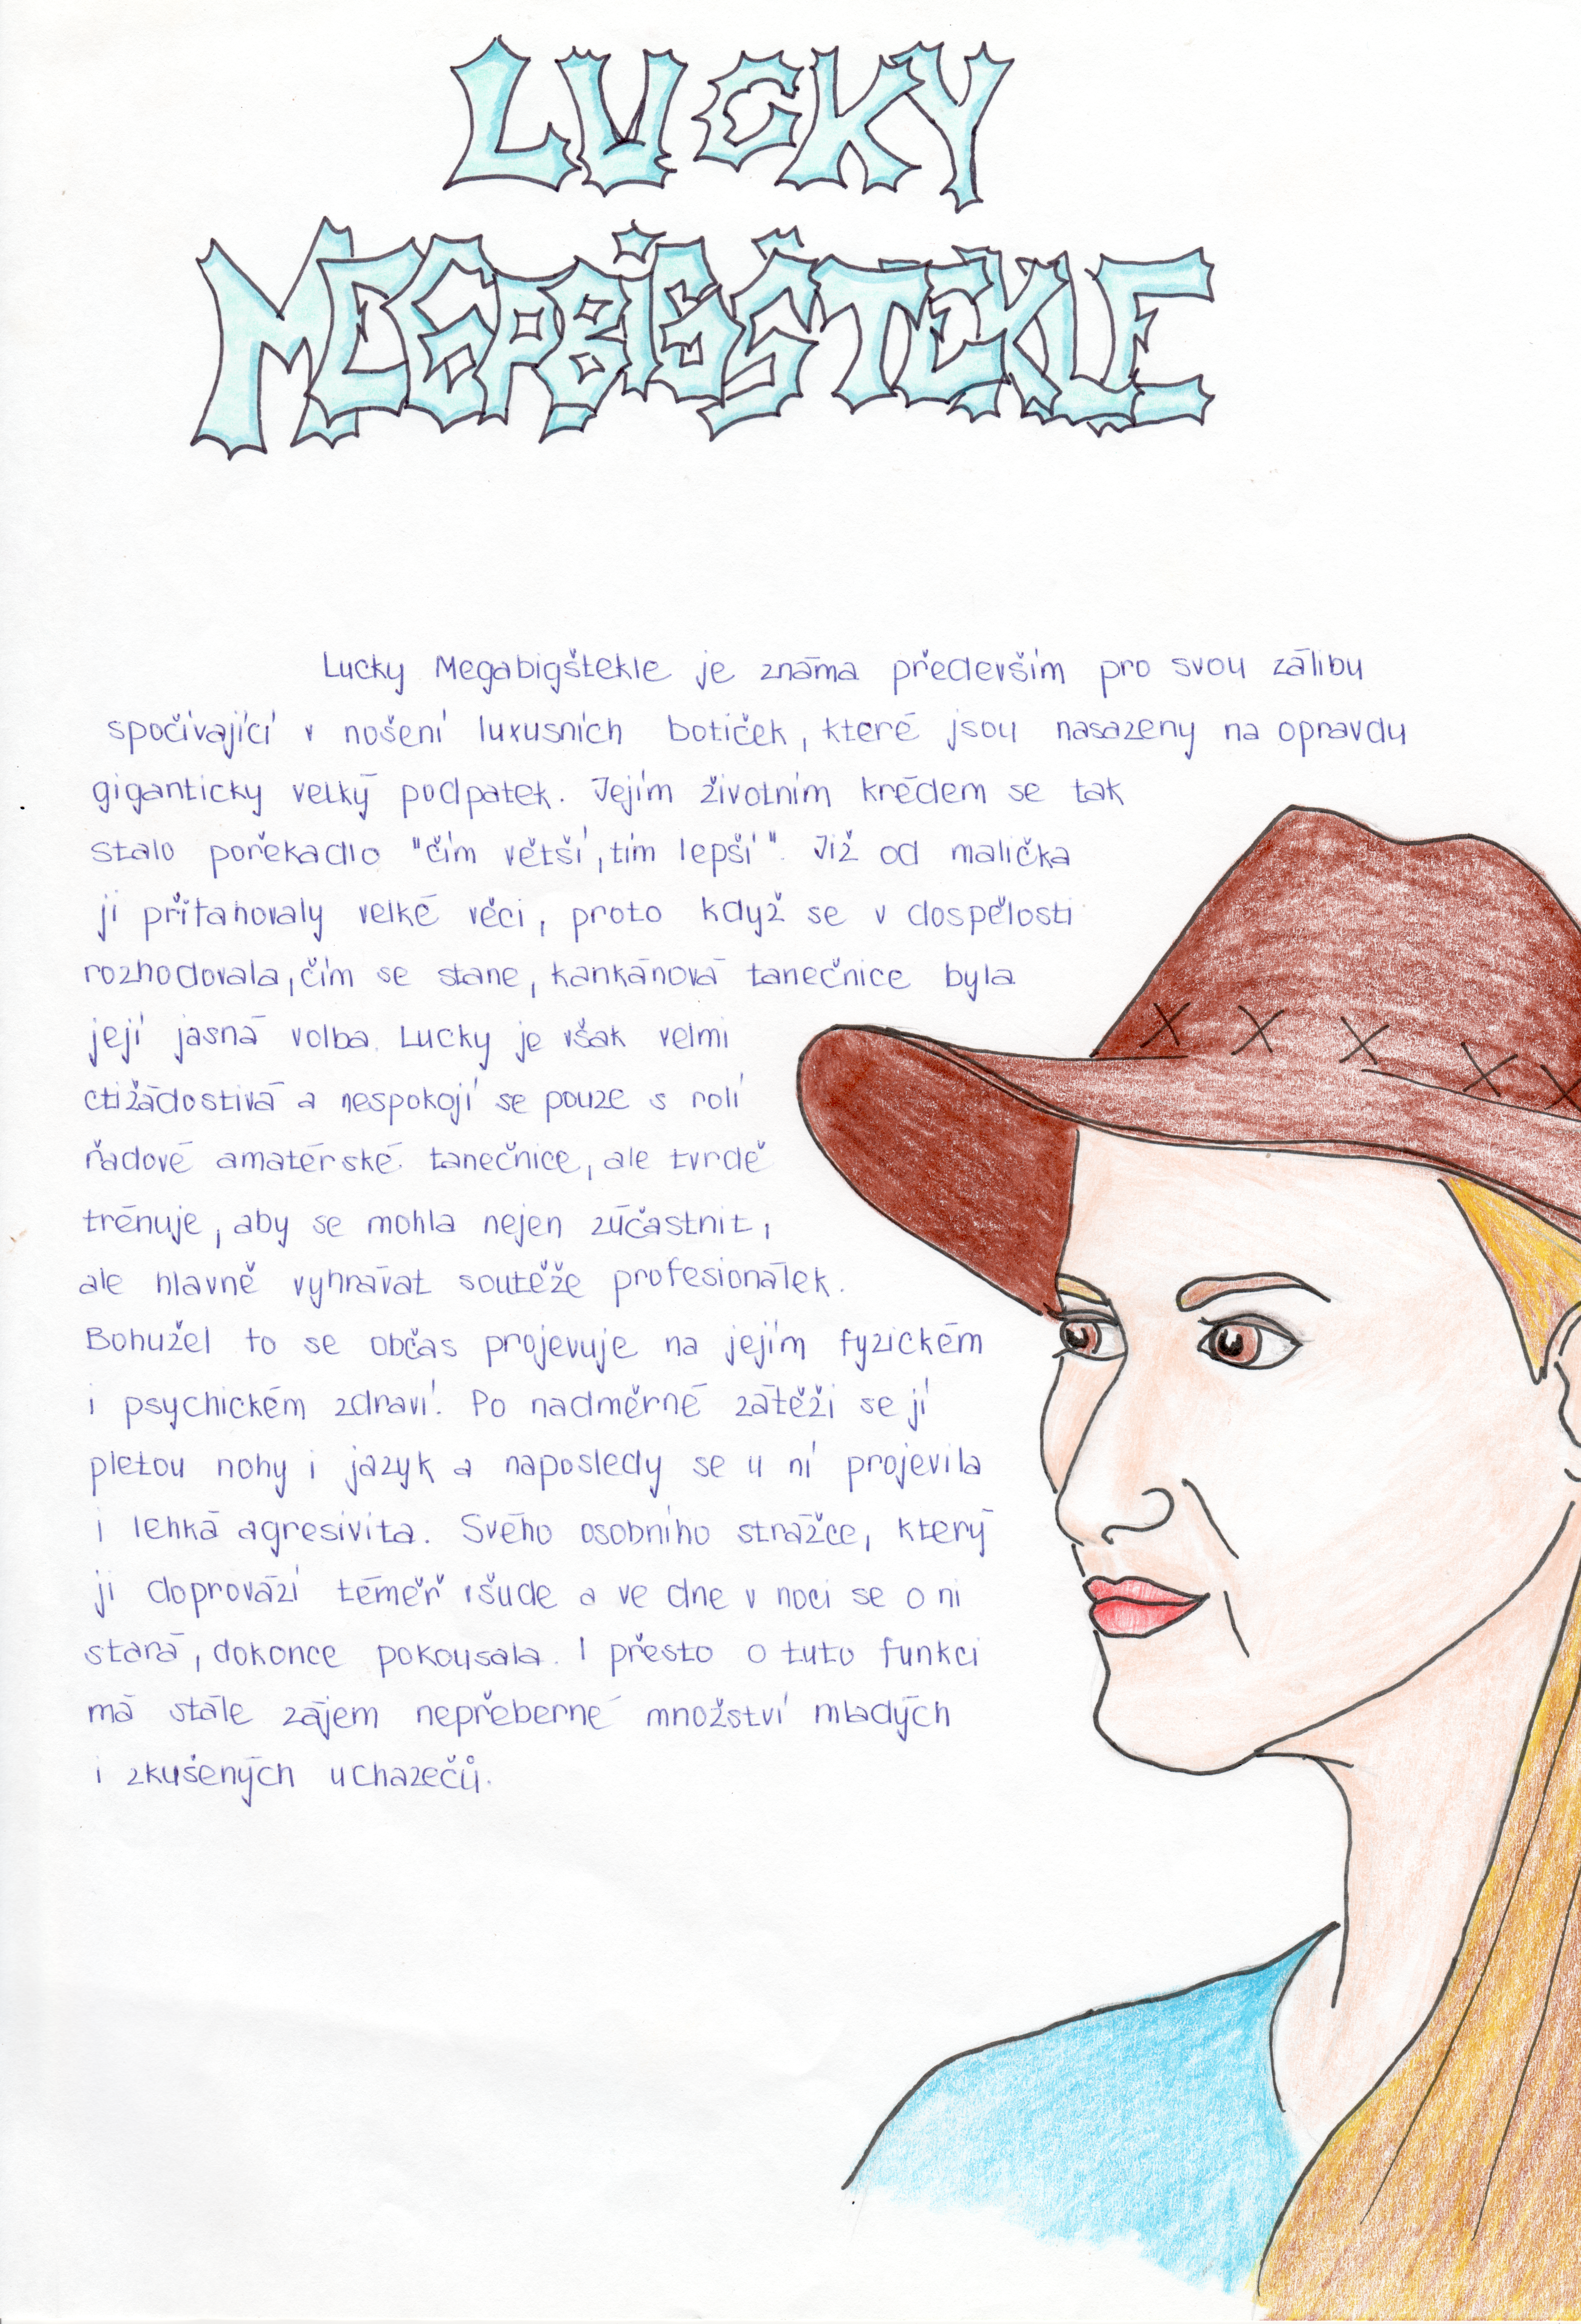 LUCKY
MEGABIGŠTEKLE
Lucky Megabigštekle je známa především pro svou zálibu
spočívající v nošení luxusních botiček, které jsou nasazeny na opravdu
giganticky velký podpatek. Jejím životním krédem se tak
stalo pořekadlo "čím větší, tím lepší". Již od malička
ji přitahovaly velké věci, proto když se v dospělosti
rozhodovala, čím se stane, kankánová tanečnice byla
její jasná volba. Lucky je však velmi
ctižádostivá a nespokojí se pouze s rolí
řadové amatérské tanečnice, ale tvrdě
trénuje, aby se mohla nejen zúčastnit,
ale hlavně vyhrávat soutěže profesionálek.
Bohužel to se občas projevuje na jejím fyzickém
i psychickém zdraví. Po nadměrné zátěži se jí
pletou nohy i jazyk a naposledy se u ní projevila
i lehká agresivita. Svého osobního strážce, který
ji doprovází téměř všude a ve dne v noci se o ni
stará, dokonce pokousala. I přesto o tuto funkci
má stále zájem nepřeberné množství mladých
i zkušených uchazečů.